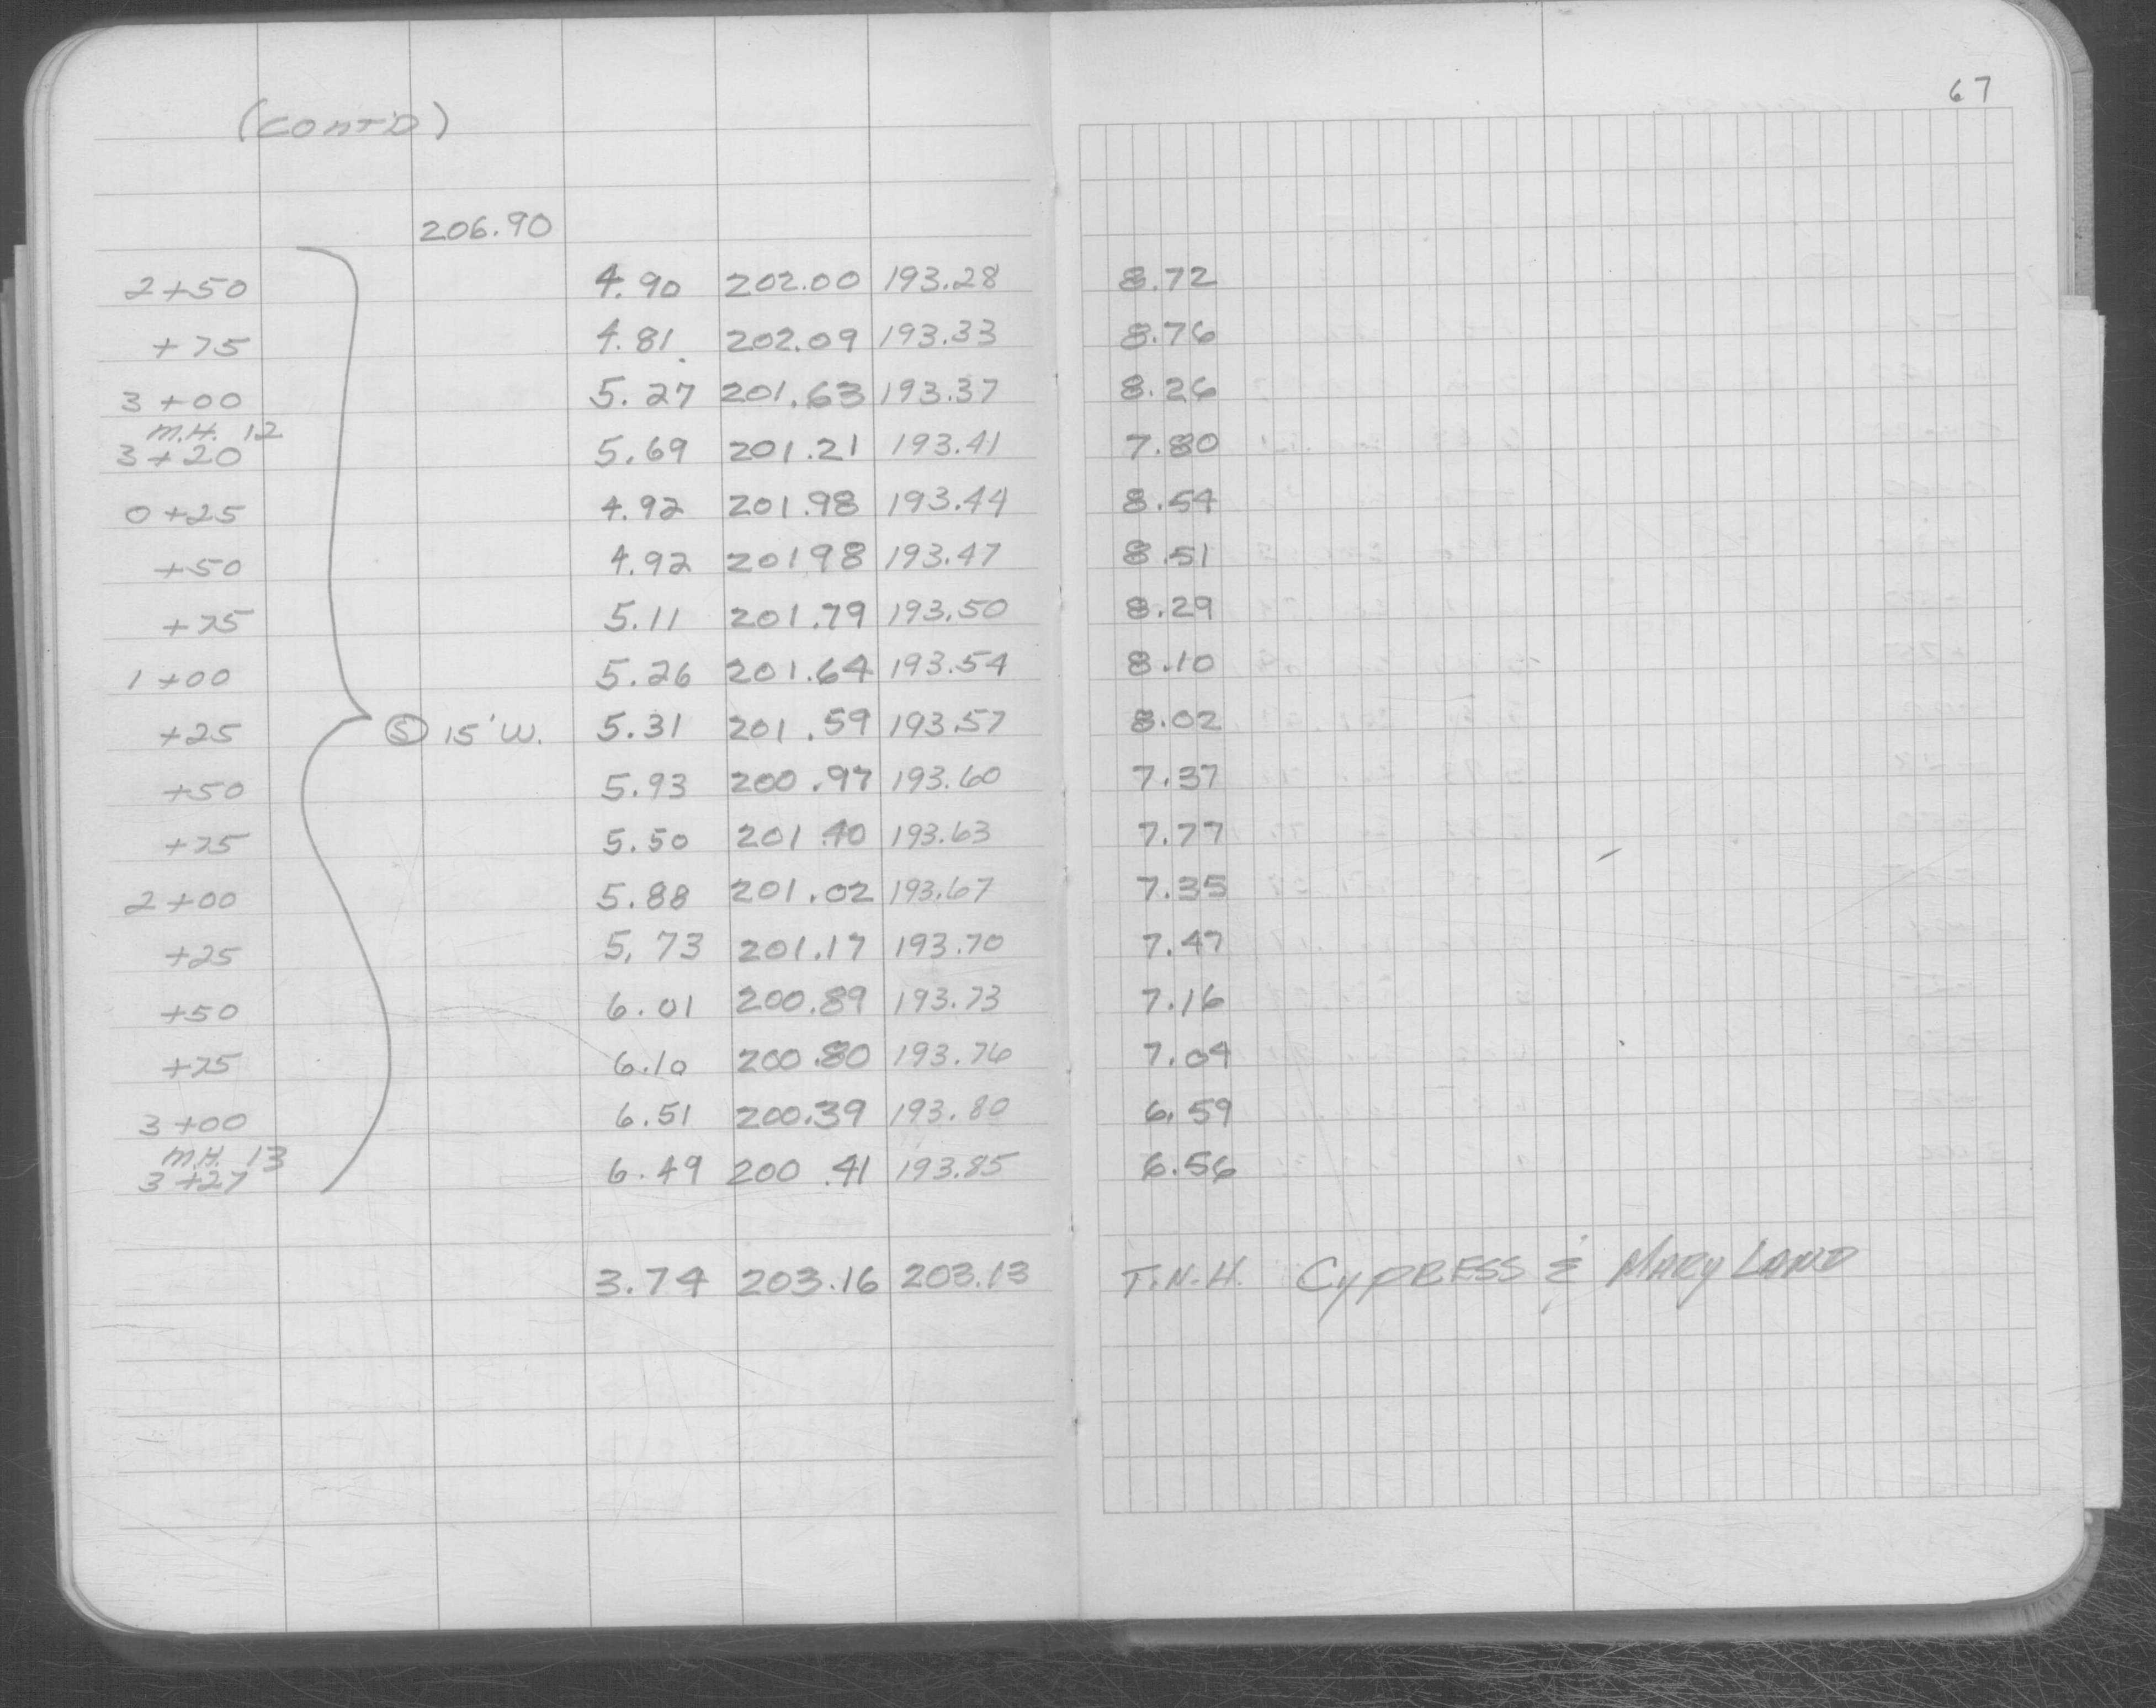 67
(CONT'D)
206.90
2+50 4.90 202.00 193.28 8.72
+75 4.81 202.09 193.33 8.76
3+00 5.27 201.63 193.37 8.26
M.H. 12
3+20 5.69 201.21 193.41 7.80
0+25 4.92 201.98 193.44 8.54
+50 4.92 20198 193.47 8.51
+75 5.11 201.79 193.50 8.29
1+00 5.26 201.64 193.54 8.10
+25 Ⓢ 15' W. 5.31 201.59 193.57 8.02
+50 5.93 200.97 193.60 7.37
+75 5.50 201.40 193.63 7.77
2+00 5.88 201.02 193.67 7.35
+25 5.73 201.17 193.70 7.47
+50 6.01 200.89 193.73 7.16
+75 6.10 200.80 193.76 7.04
3+00 6.51 200.39 193.80 6.59
M.H. 13
3+27 6.49 200.41 193.85 6.56
3.74 203.16 203.13 T.N.H. CYPRESS & MARYLAND